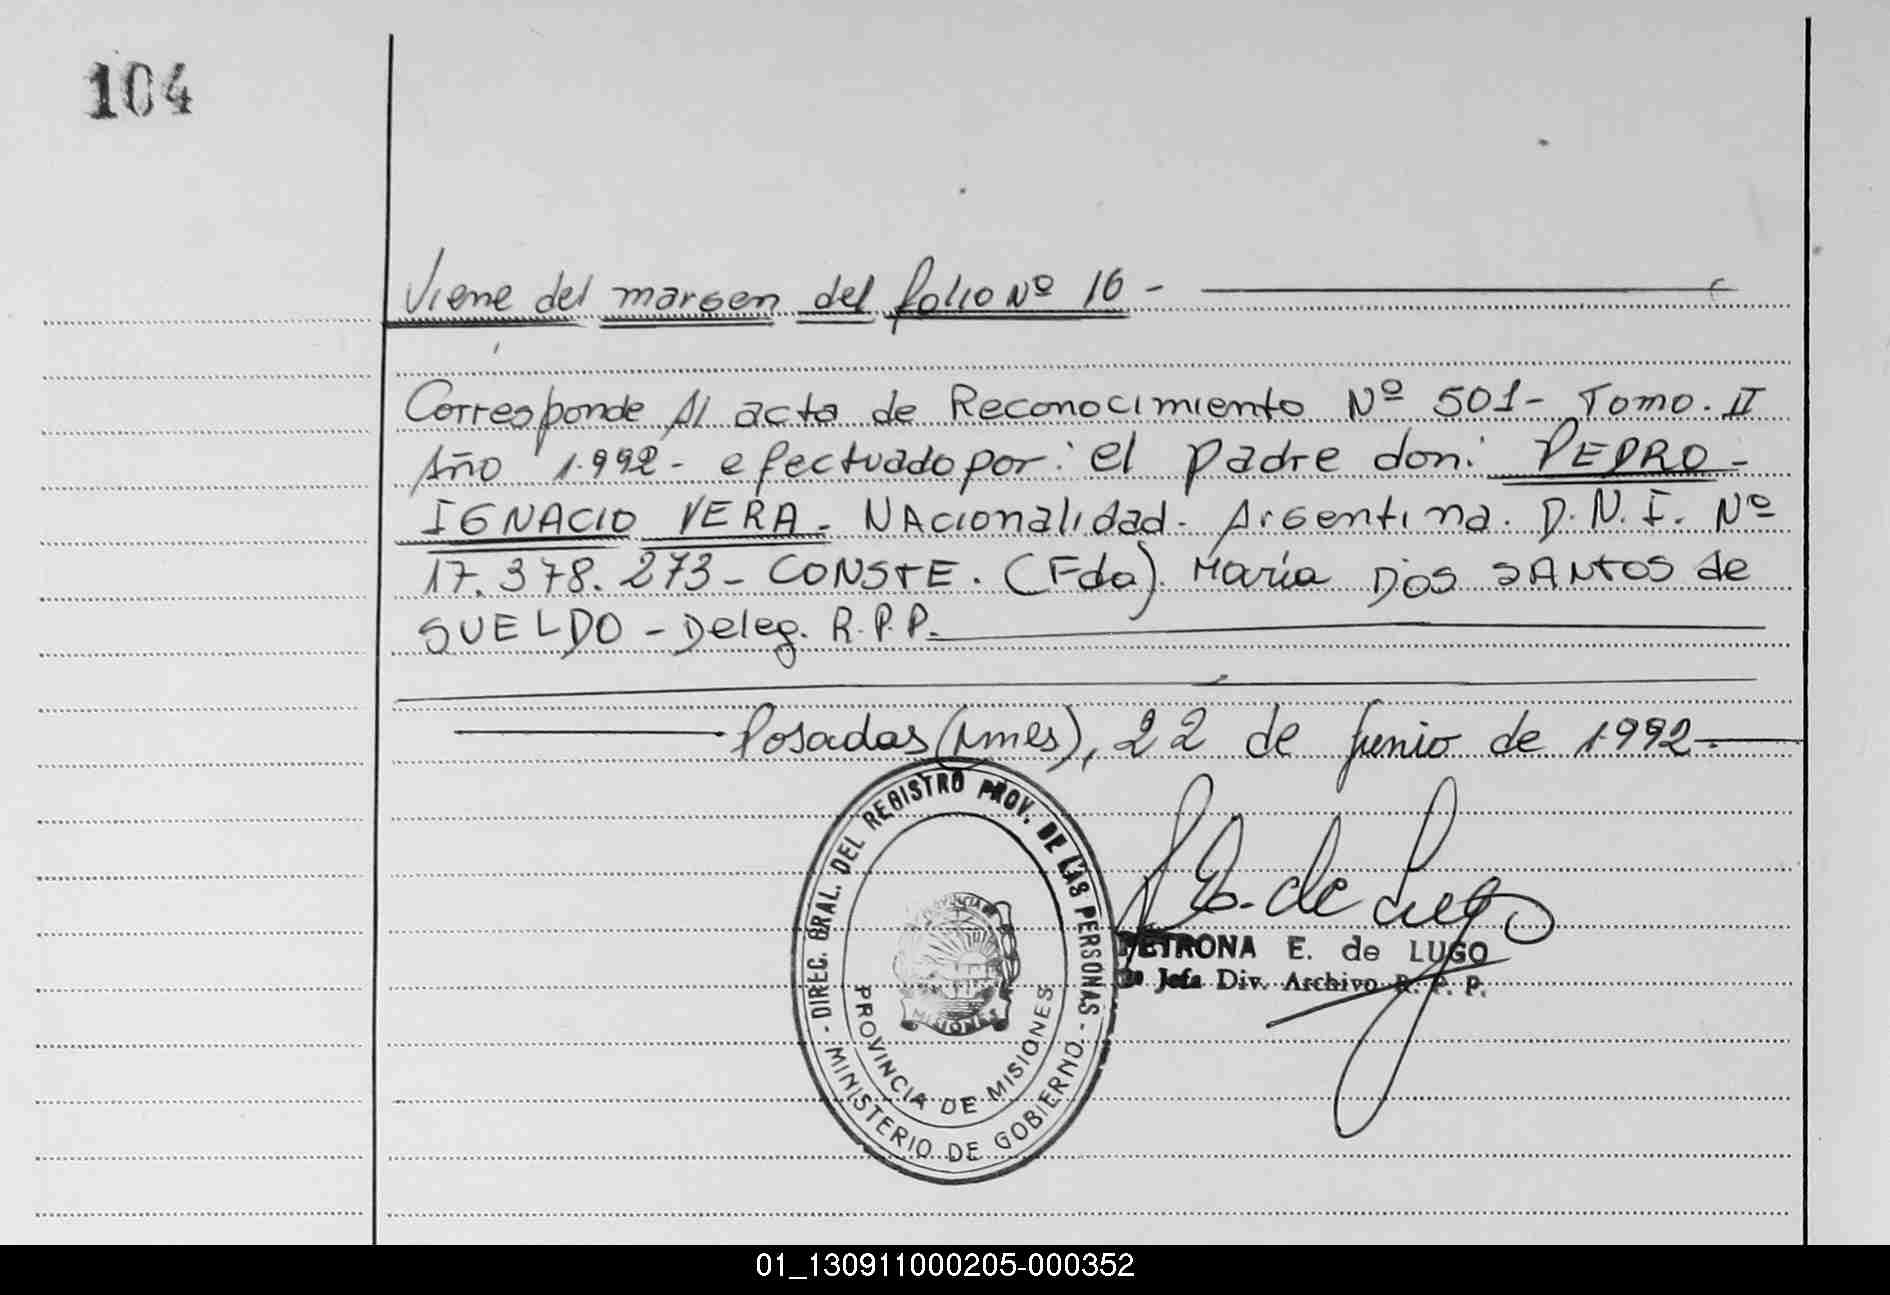 104
Viene del margen del folio Nº 16 -
Corresponde Al acta de Reconocimiento Nº 501- Tomo. II
Año 1.992- efectuado por: el padre don: PEDRO -
IGNACIO VERA - NAcionalidad. Argentina. D.N.I. Nº
17.378.273- CONSTE. (Fdo). María DOS SANTOS de
SUELDO - Deleg. R.P.P.
Posadas (Mnes), 22 de Junio de 1992.-
- DIREC. GRAL. DEL REGISTRO PROV. DE LAS PERSONAS -
MINISTERIO DE GOBIERNO
PROVINCIA DE
MISIONES
PROVINCIA DE MISIONES
P. E. de Lugo
PETRONA E. de LUGO
Jefa Div. Archivo R. P. P.
01_130911000205-000352